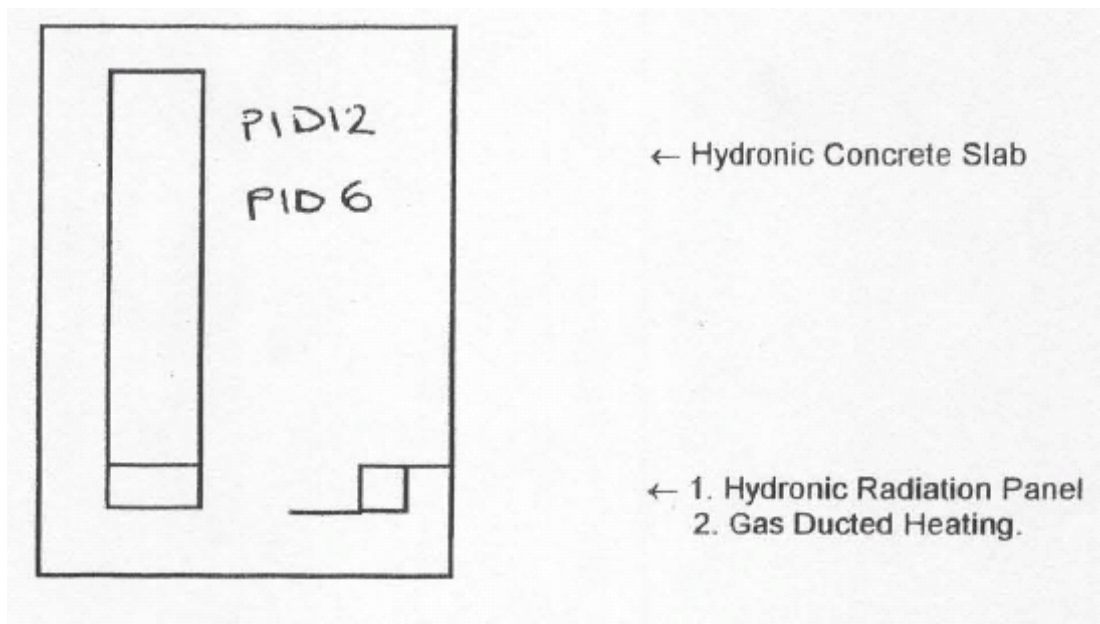 PID12
PID 6
← Hydronic Concrete Slab
← 1. Hydronic Radiation Panel
2. Gas Ducted Heating.